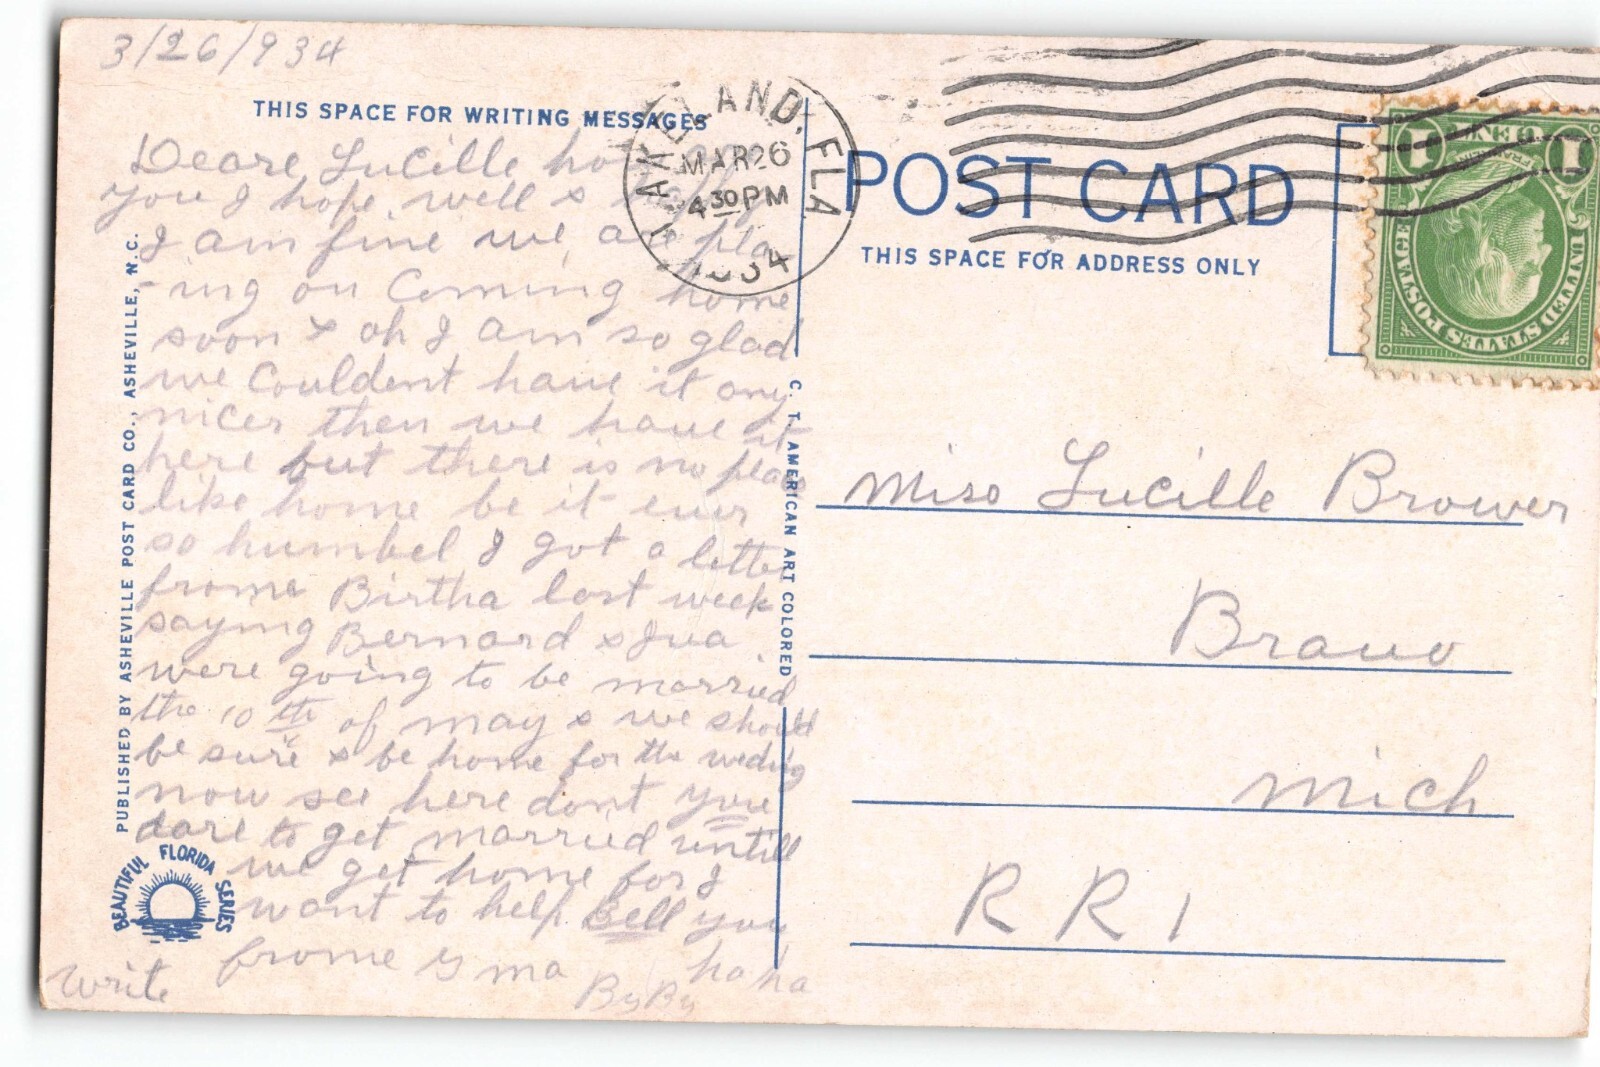 3/26/934
THIS SPACE FOR WRITING MESSAGES
Deare Lucille how
you I hope well &
I am fine we are pla
-ing on Coming home
soon & oh I am so glad
we Couldent have it any
nicer then we have it
here but there is no place
like home be it ever
so humbel I got a letter
frome Birtha last week
saying Bernard & Iva
were going to be married
the 10th of may & we should
be sure & be home for the weding
now see here dont you
dare to get married untill
we get home for I
want to help Bell you
frome y ma ha ha
write By By
PUBLISHED BY ASHEVILLE POST CARD CO., ASHEVILLE, N.C.
BEAUTIFUL FLORIDA SERIES
C. T. AMERICAN ART COLORED
LAKELAND, FLA
MAR 26
4 30 PM
1934
POST CARD
THIS SPACE FOR ADDRESS ONLY
1 1
UNITED STATES POSTAGE
FRANKLIN
Miss Lucille Brower
Bravo
Mich
R R 1